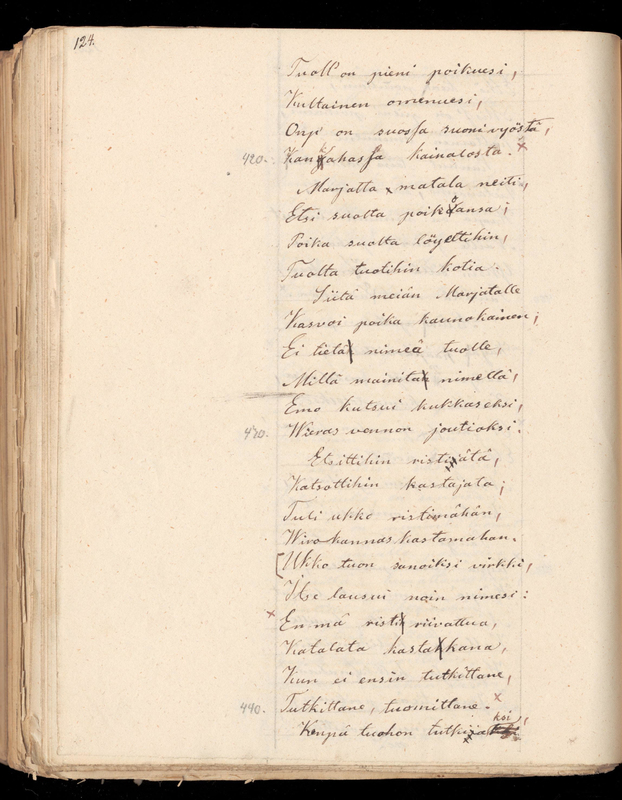 124.
Tuoll' on pieni poikuesi,
Kultainen omenuesi,
Onpi on suossa suonivyöstä,
420. Kankahassa kainalosta.
Marjatta, matala neiti,
Etsi suolta poikoansa;
Poika suolta löyettihin,
Tuolta tuotihin kotia.
Siitä meiän Marjatalle
Kasvoi poika kaunokainen;
Ei tietä nimeä tuolle,
Millä mainita nimellä,
Emo kutsui kukkaseksi,
430. Wieras vennon joutioksi.
Etsittihin ristijätä,
Katsottihin kastajata;
Tuli ukko ristimähän,
Wirokannas kastamahan.
Ukko tuon sanoiksi virkki,
Itse lausui noin nimesi:
En mä risti riivattua,
Katalata kasta kana,
Kun ei ensin tutkittane,
440. Tutkittane, tuomittane.
Kenpä tuohon tutkijaksi,